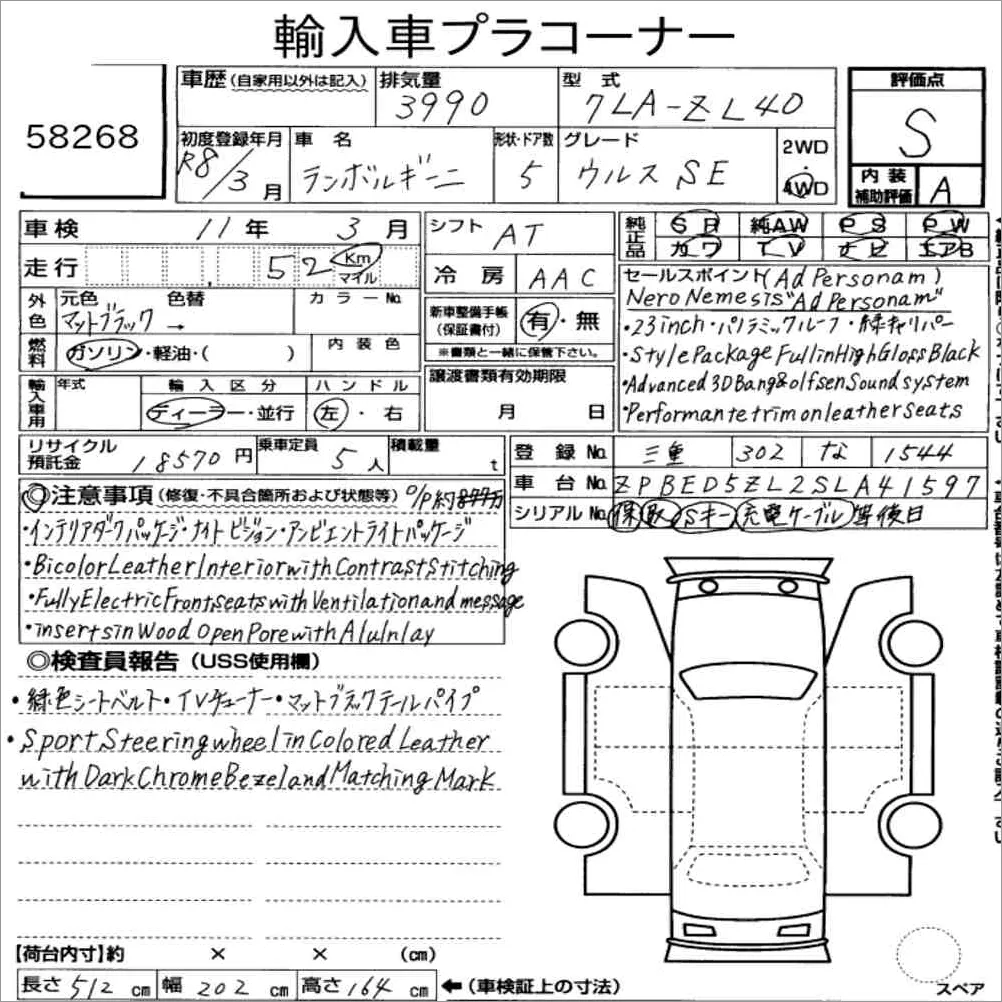 輸入車プラコーナー
58268
車歴(自家用以外は記入)
排気量
3990
型式
7LA-ZL40
評価点
S
初度登録年月
R8/3月
車名
ランボルギーニ
形状・ドア数
5
グレード
ウルス SE
2WD
4WD
内装
補助評価
A
車検 11年 3月
シフト AT
純正品
SR 純AW PS PW
カワ TV ナビ エアB
走行 52 Km
マイル
冷房 AAC
セールスポイント(Ad Personam)
Nero Nemesis "Ad Personam"
・23inch・パノラミックルーフ・緑キャリパー
・Style Package Full in High Gloss Black
・Advanced 3D Bang&olfsen Sound system
・Performante trim on leather seats
外色
元色 色替
マットブラック →
カラーNo.
新車整備手帳
(保証書付)
有・無
※書類と一緒に保管下さい。
燃料
ガソリン・軽油・( )
内装色
輸入車用
年式
輸入区分
ディーラー・並行
ハンドル
左・右
譲渡書類有効期限
月 日
リサイクル
預託金
18570円
乗車定員
5人
積載量
t
登録No. 三重 302 な 1544
車台No. ZPBED5ZL2SLA41597
シリアルNo. 保 取 Sキー 充電ケーブル 等後日
◎注意事項(修復・不具合箇所および状態等) o/p約 万
・インテリアダークパッケージ・ナイトビジョン・アンビエントライトパッケージ
・Bicolor Leather Interior with Contrast Stitching
・Fully Electric Front seats with Ventilation and message
・inserts in Wood Open Pore with Alu Inlay
◎検査員報告(USS使用欄)
・緑色シートベルト・TVチューナー・マットブラックテールパイプ
・Sport Steering wheel in Colored Leather
with Dark Chrome Bezel and Matching Mark
【荷台内寸】約 × × (cm)
長さ 512 cm 幅 202 cm 高さ 164 cm ←(車検証上の寸法)
スペア